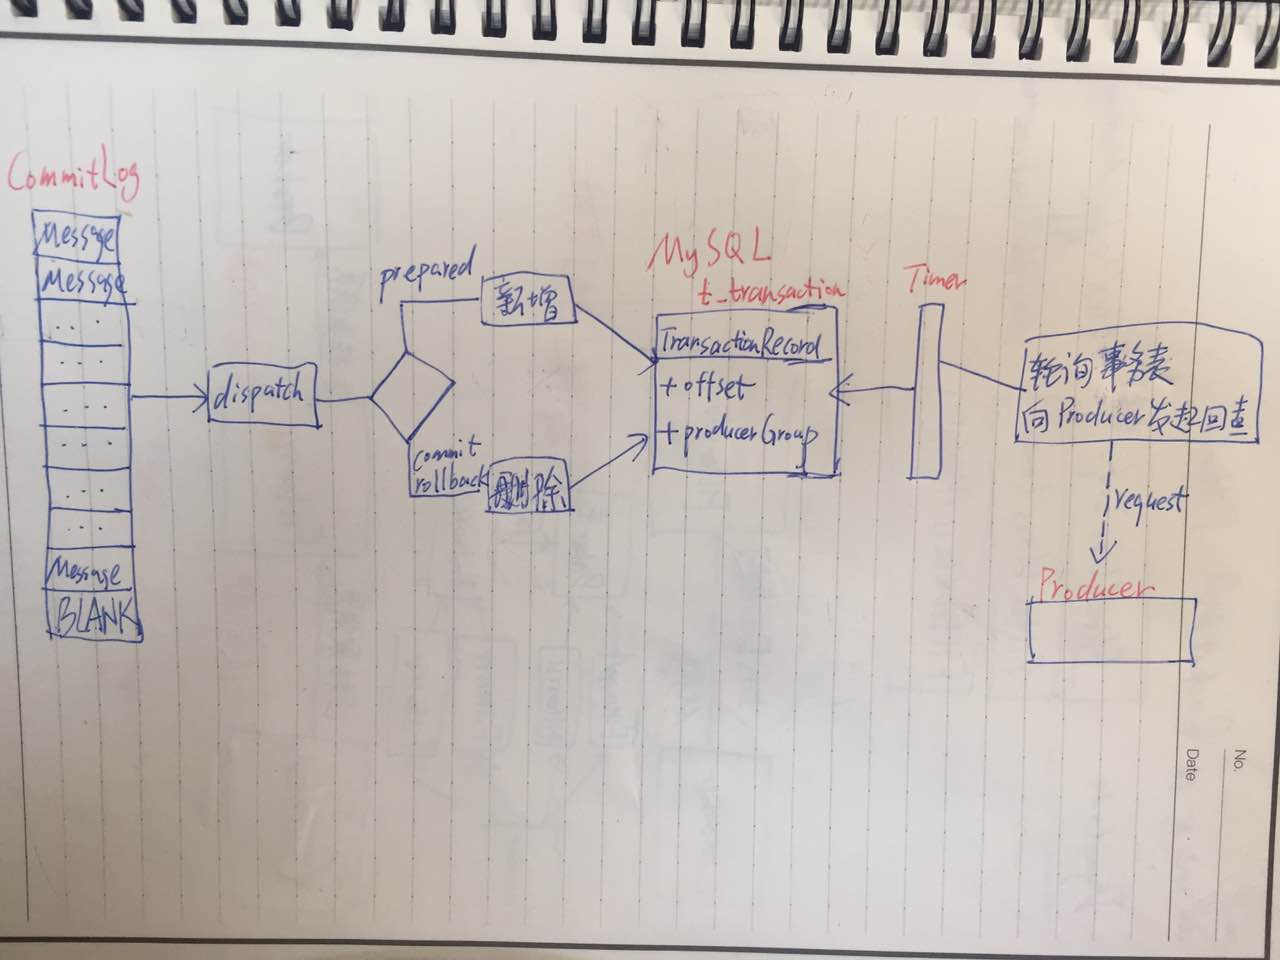 CommitLog
Message
Message
...
...
...
...
...
...
Message
BLANK
dispatch
prepared
新增
commit
rollback
删除
MySQL
t_transaction
TransactionRecord
+ offset
+ producerGroup
Timer
轮询事务表
向Producer发起回查
request
Producer
No.
Date